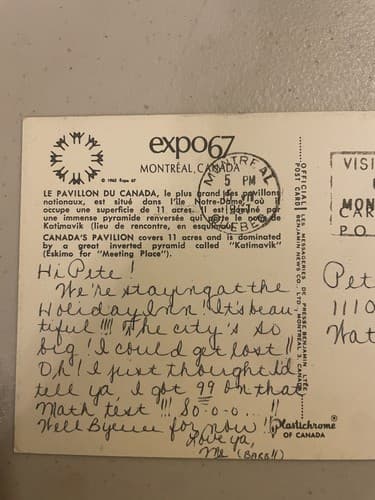 expo67
© 1963 Expo 67
MONTRÉAL, CANADA
LE PAVILLON DU CANADA, le plus grand des pavillons
nationaux, est situé dans l'Île Notre-Dame, où
occupe une superficie de 11 acres. Il est dominé par
une immense pyramide renversée qui porte le nom de
Katimavik (lieu de rencontre, en esquimau).
CANADA'S PAVILION covers 11 acres and is dominated
by a great inverted pyramid called "Katimavik"
(Eskimo for "Meeting Place").
MONTREAL
5 PM
QUEBEC
Hi Pete!
We're staying at the
Holiday Inn! It's beau-
tiful !!!! The city's so
big! I could get lost!!
Oh! I just thought I'd
tell ya, I got 99 on that
Math test !!! So-o-o...!!
Well Byeeee for now!!
Love ya,
Me (Barb!!)
Plastichrome®
OF CANADA
OFFICIAL POST CARD
LES MESSAGERIES DE PRESSE BENJAMIN LTÉE
BENJAMIN NEWS CO. LTD. MONTREAL 3, CANADA
VISI
MON
CAR
PO
Pet
1110
Wat